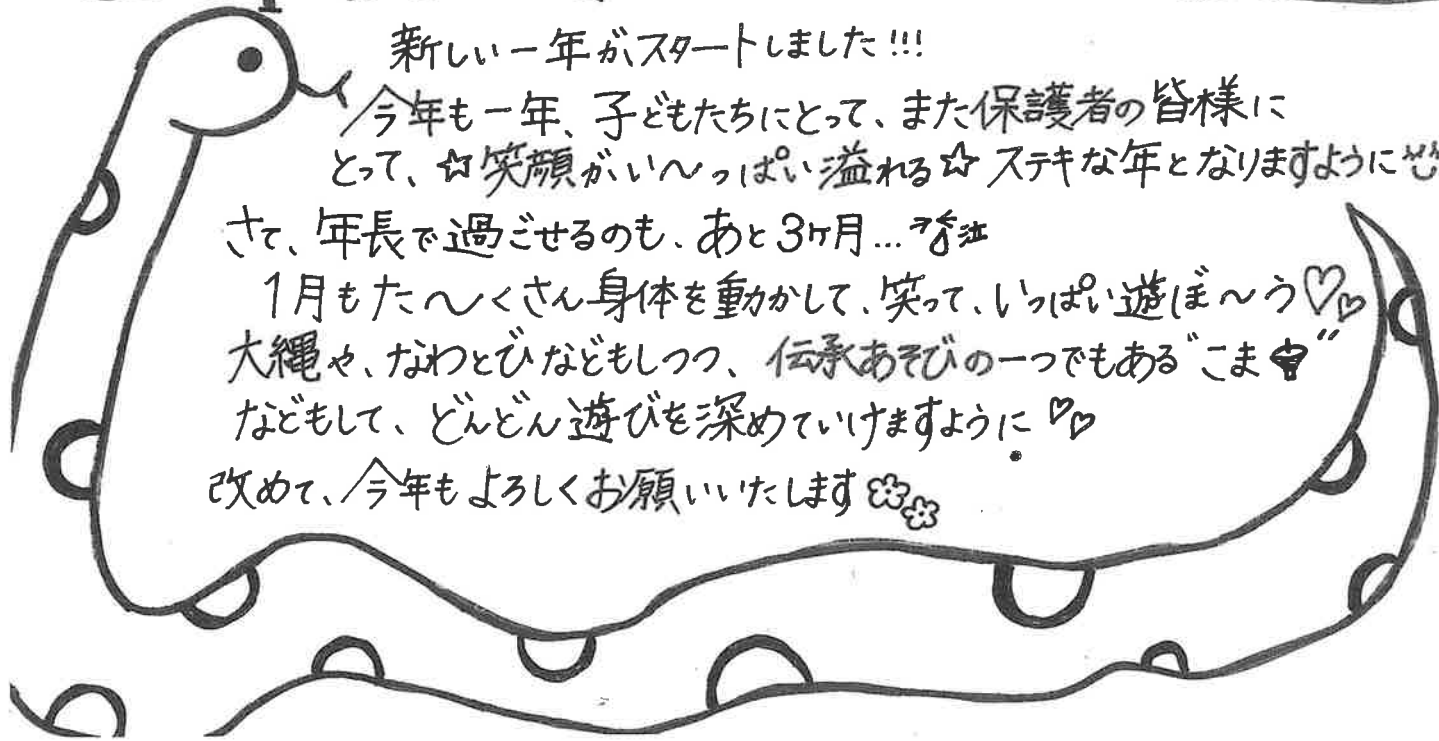 新しい一年がスタートしました!!!
今年も一年、子どもたちにとって、また保護者の皆様に
とって、☆笑顔がい〜っぱい溢れる☆ ステキな年となりますように
さて、年長で過ごせるのも、あと3ヶ月...泣
1月もた〜くさん身体を動かして、笑って、いっぱい遊ぼ〜う♡♡
大縄や、なわとびなどもしつつ、伝承あそびの一つでもある"こま"
などもして、どんどん遊びを深めていけますように♡♡
改めて、今年もよろしくお願いいたします